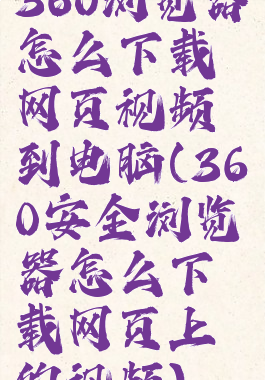 360浏览器
怎么下载
网页视频
到电脑(36
0安全浏览
器怎么下
载网页上
的视频)